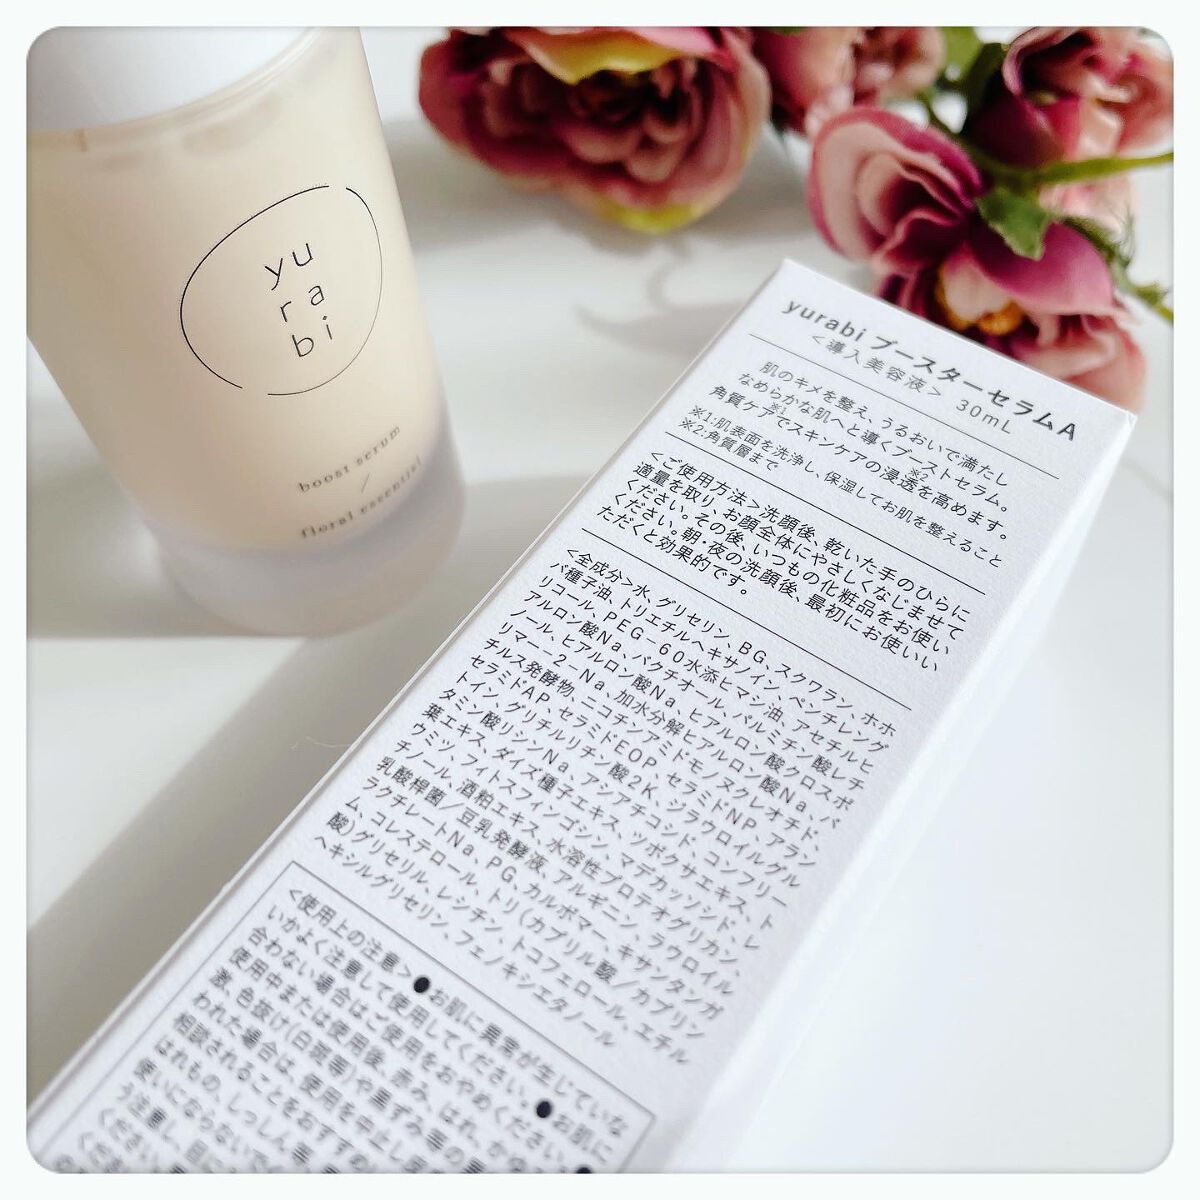 yu
ra
bi
boost serum
/
floral essential
yurabi ブースターセラムA
<導入美容液> 30mL
肌のキメを整え、うるおいで満たし
なめらかな肌へと導くブーストセラム。
角質ケア※1でスキンケアの浸透※2を高めます。
※1:肌表面を洗浄し、保湿してお肌を整えること
※2:角質層まで
<ご使用方法>洗顔後、乾いた手のひらに
適量を取り、お顔全体にやさしくなじませて
ください。その後、いつもの化粧品をお使い
ください。朝・夜の洗顔後、最初にお使いい
ただくと効果的です。
<全成分>水、グリセリン、BG、スクワラン、ホホ
バ種子油、トリエチルヘキサノイン、ペンチレング
リコール、PEG-60水添ヒマシ油、アセチルヒ
アルロン酸Na、バクチオール、パルミチン酸レチ
ノール、ヒアルロン酸Na、ヒアルロン酸クロスポ
リマー-2-Na、加水分解ヒアルロン酸Na、バ
チルス発酵物、ニコチンアミドモノヌクレオチド、
セラミドAP、セラミドEOP、セラミドNP、アラン
トイン、グリチルリチン酸2K、ジラウロイルグル
タミン酸リシンNa、アシアチコシド、コンフリー
葉エキス、ダイズ種子エキス、ツボクサエキス、ト
ウミツ、フィトスフィンゴシン、マデカッソシド、レ
チノール、酒粕エキス、水溶性プロテオグリカン、
乳酸桿菌/豆乳発酵液、アルギニン、ラウロイル
ラクチレートNa、PG、カルボマー、キサンタンガ
ム、コレステロール、トリ(カプリル酸/カプリン
酸)グリセリル、レシチン、トコフェロール、エチル
ヘキシルグリセリン、フェノキシエタノール
<使用上の注意>●お肌に異常が生じていな
いかよく注意して使用してください。●お肌に
合わない場合はご使用をおやめください。
使用中または使用後、赤み、はれ、かゆ
激、色抜け(白斑等)や黒ずみ等の
われた場合は、使用を中止し
相談されることをおすすめ
はれもの、しっしん等
使いにならないで
う注意し、目に
ください